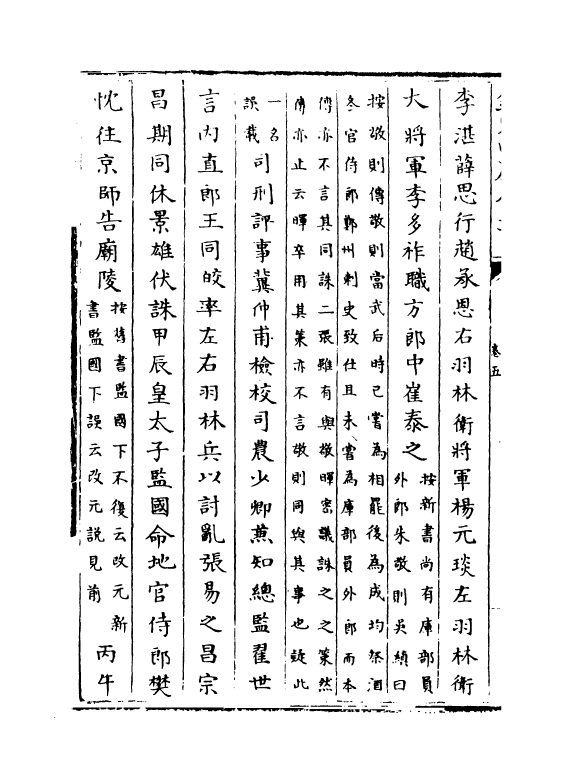 李湛薛思行趙承恩右羽林衛將軍楊元琰左羽林衛
大將軍李多祚職方郎中崔泰之
按新書尚有庫部員
外郎朱敬則吳縝曰
按敬則傳敬則當武后時已嘗為相罷後為成均祭酒
冬官侍郎鄭州刺史致仕且未嘗為庫部員外郎而本
傳亦不言其同誅二張雖有與敬暉密議誅之之策然
傳亦止云暉卒用其策亦不言敬則同與其事也疑此
一名
誤載
司刑評事冀仲甫檢校司農少卿兼知總監翟世
言内直郎王同皎率左右羽林兵以討亂張易之昌宗
昌期同休景雄伏誅甲辰皇太子監國命地官侍郎樊
忱往京師告廟陵
按舊書監國下不復云改元新
書監國下誤云改元説見前
丙午
卷五